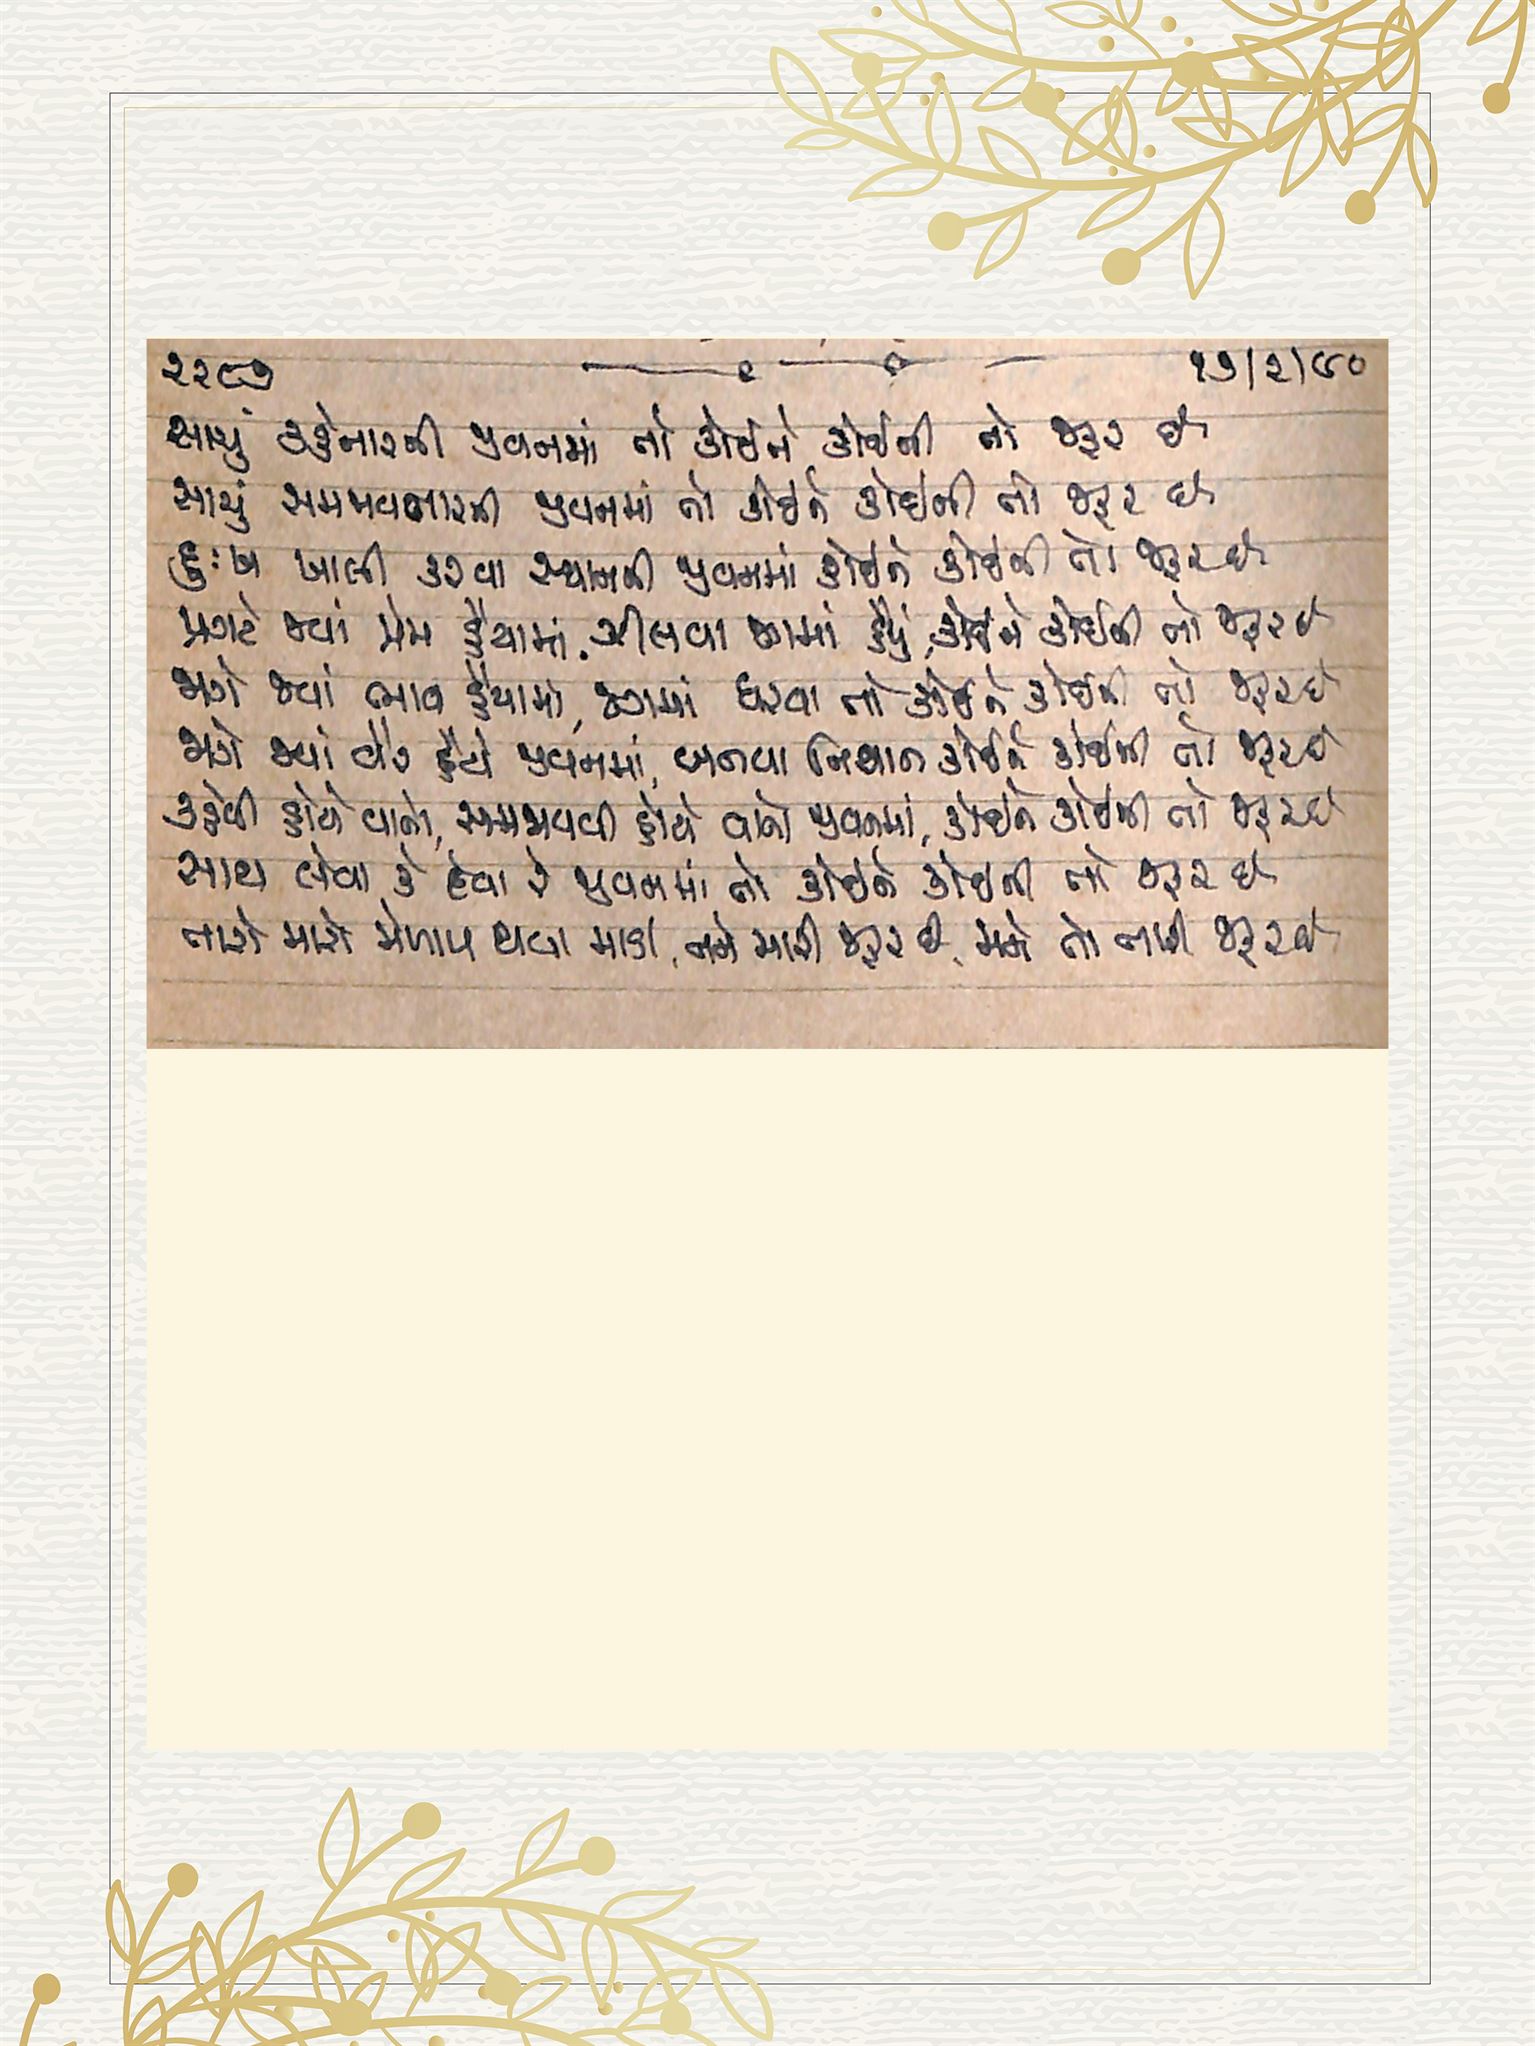 ૨૨૯૭ ૧૭/૨/૯૦
સાચું કહેનારની જીવનમાં તો કોઈને કોઈની તો જરૂર છે
સાચું સમજાવનારની જીવનમાં તો કોઈને કોઈની તો જરૂર છે
દુઃખ ખાલી કરવા સ્થાનની જીવનમાં કોઈને કોઈની તો જરૂર છે
પ્રગટે જ્યાં પ્રેમ હૈયામાં, ઝીલવા જગમાં હૈયું, કોઈને કોઈની તો જરૂર છે
જાગે જ્યાં ભાવ હૈયામાં, જગમાં ધરવા તો કોઈને કોઈની તો જરૂર છે
જાગે જ્યાં વૈર હૈયે જીવનમાં, બનવા નિશાન કોઈને કોઈની તો જરૂર છે
કહેવી હોયે વાતો, સમજાવવી હોયે વાતો જીવનમાં, કોઈને કોઈની તો જરૂર છે
સાથ લેવા કે દેવા રે જીવનમાં તો કોઈને કોઈની તો જરૂર છે
તારો મારો મેળાપ થાવા માડી, તને મારી જરૂર છે, મને તો તારી જરૂર છે